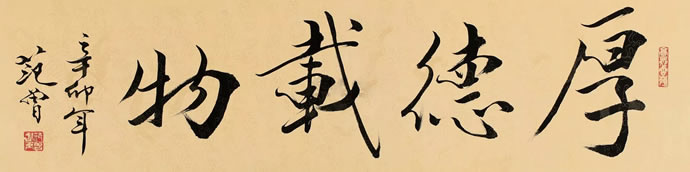 厚德載物
辛卯年
范曾